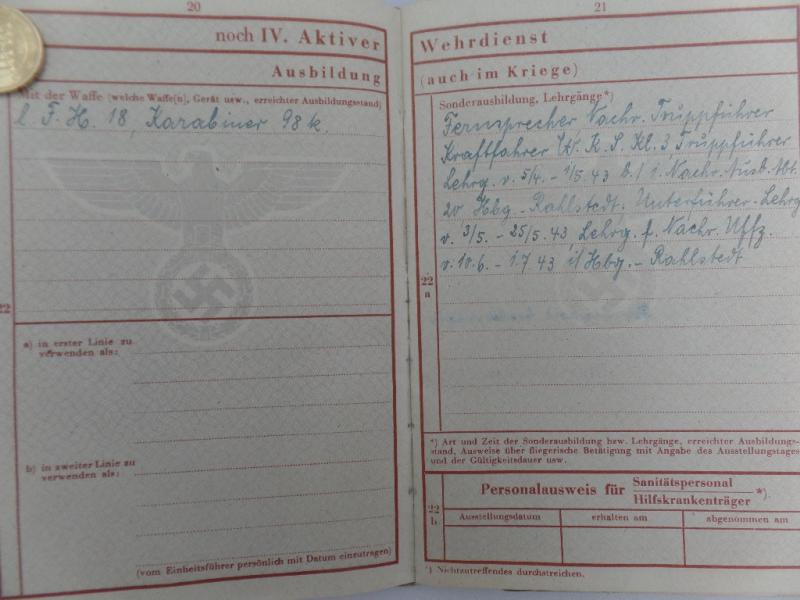 20
noch IV. Aktiver
Ausbildung
Mit der Waffe (welche Waffe(n), Gerät usw., erreichter Ausbildungsstand)
l. F. H. 18, Karabiner 98 k.
22
a) in erster Linie zu
verwenden als:
b) in zweiter Linie zu
verwenden als:
(vom Einheitsführer persönlich mit Datum einzutragen)
21
Wehrdienst
(auch im Kriege)
Sonderausbildung, Lehrgänge*)
Fernsprecher Nachr. Truppführer
Kraftfahrer W. K. S. Kl. 3, Truppführer
Lehrg. v. 5/4. - 1/5. 43 b. / i. Nachr. Ausb. Abt.
20 Hbg. - Rahlstedt. Unterführer-Lehrg
v. 3/5. - 25/5. 43, Lehrg. f. Nachr. Uffz.
v. 10.6. - 1.7 43 i/ Hbg. - Rahlstedt
22
a
*) Art und Zeit der Sonderausbildung bzw. Lehrgänge, erreichter Ausbildungs-
stand, Ausweise über fliegerische Betätigung mit Angabe des Ausstellungstages
und der Gültigkeitsdauer usw.
22
b
Personalausweis für Sanitätspersonal
Hilfskrankenträger *)
Ausstellungsdatum erhalten am abgenommen am
*) Nichtzutreffendes durchstreichen.